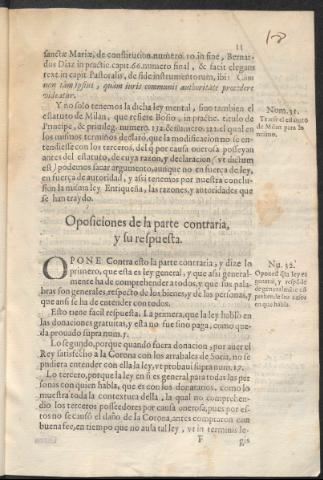 18
11
sanctæ Mariæ, de constitution. numero. 10. in fine, Bernar-
dus Diaz in practic. capit. 66. numero final, & facit elegans
text. in capit. Pastoralis, de fide instrumentorum, ibi: Cum
non tàm ipsius, quàm iuris communis authoritate procedere
videatur.
Y no solo tenemos la dicha ley mental, sino tambien el
estatuto de Milan, que refiere Bosio, in practic. titulo de
Principe, & priuileg. numero. 132. & numero. 122. el qual en
los mismos terminos declaró, que la modificacion no se en-
tendiesse con los terceros, del q̃ por causa onerosa posseyan
antes del estatuto, de cuya razon, y declaracion (vt dictum
est) podemos sacar argumento, aunque no en fuerça de ley,
en fuerça de autoridad, y assi tenemos por nuestra conclu-
sion la misma ley Enriqueña, las razones, y autoridades que
se han traydo.
Num. 31.
Trae se el estatuto
de Milan para lo
mismo.
Oposiciones de la parte contraria,
y su respuesta.
OPONE Contra esto la parte contraria, y dize lo
primero, que esta es ley general, y que assi general-
mente ha de comprehender a todos, y que sus pala-
bras son generales, respecto de los bienes, y de las personas, y
que ansi se ha de entender con todos.
Nu. 32.
Opone se q̃ la ley es
general, y respõde
de generalmẽte cõ
prehende los casos
en que habla.
Esto tiene facil respuesta. La primera, que la ley habló en
las donaciones gratuitas, y esta no fue sino paga, como que-
da prouado supra num. 7.
Lo segundo, porque quando fuera donacion, por auer el
Rey satisfecho a la Corona con los arrabales de Soria, no se
pudiera entender con ella la ley, vt probaui supra num. 17.
Lo tercero, porque la ley en si es general para todas las per
sonas con quien habla, que es con los donatarios, como lo
muestra toda la contextura della, la qual no comprehen-
dio los terceros possedores por causa onerosa, pues por es-
tos no se causò el daño de la Corona, antes compraron con
buena fee, en tiempo que no auia tal ley, vt in terminis le-
F
gis